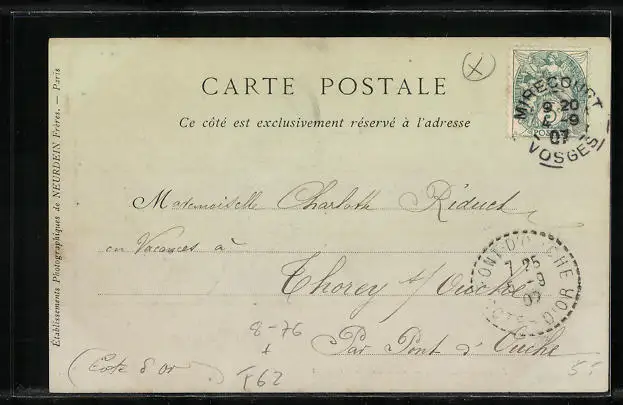 CARTE POSTALE
Ce côté est exclusivement réservé à l'adresse
Établissements Photographiques de NEURDEIN Frères. — Paris
MIRECOURT
9 20
4 -9
07
VOSGES
POSTES
Mademoiselle Charlotte Riduet
en Vacances à
Thorey s/ Ouche
Par Pont d'Ouche
(Cote d'or)
PONT-D'OUCHE
7 25
5 -9
07
COTE-D'OR
8-76
+
F62
5